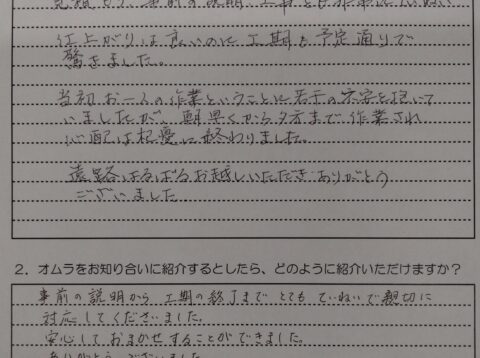 見積もり、事前の説明、工事とも非常にていねい
仕上がりは良いのに工期も予定通りで
驚きました。
当初お一人の作業ということに若干の不安を抱いて
いましたが、朝早くから夕方まで作業され
心配は杞憂に終わりました。
遠路はるばるお越しいただきありがとう
ございました
2．オムラをお知り合いに紹介するとしたら、どのように紹介いただけますか？
事前の説明から工期の終了までとてもていねいで親切に
対応してくださいました。
安心しておまかせすることができました。
ありがとうございました